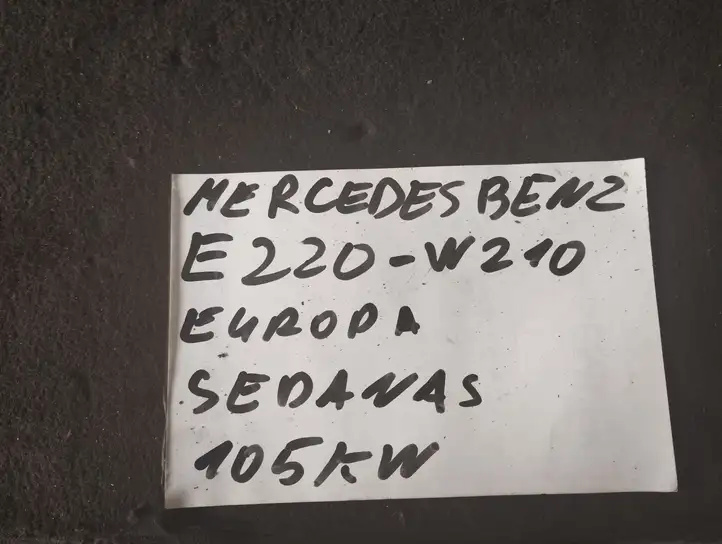 MERCEDES BENZ
E220-W210
EUROPA
SEDANAS
105KW